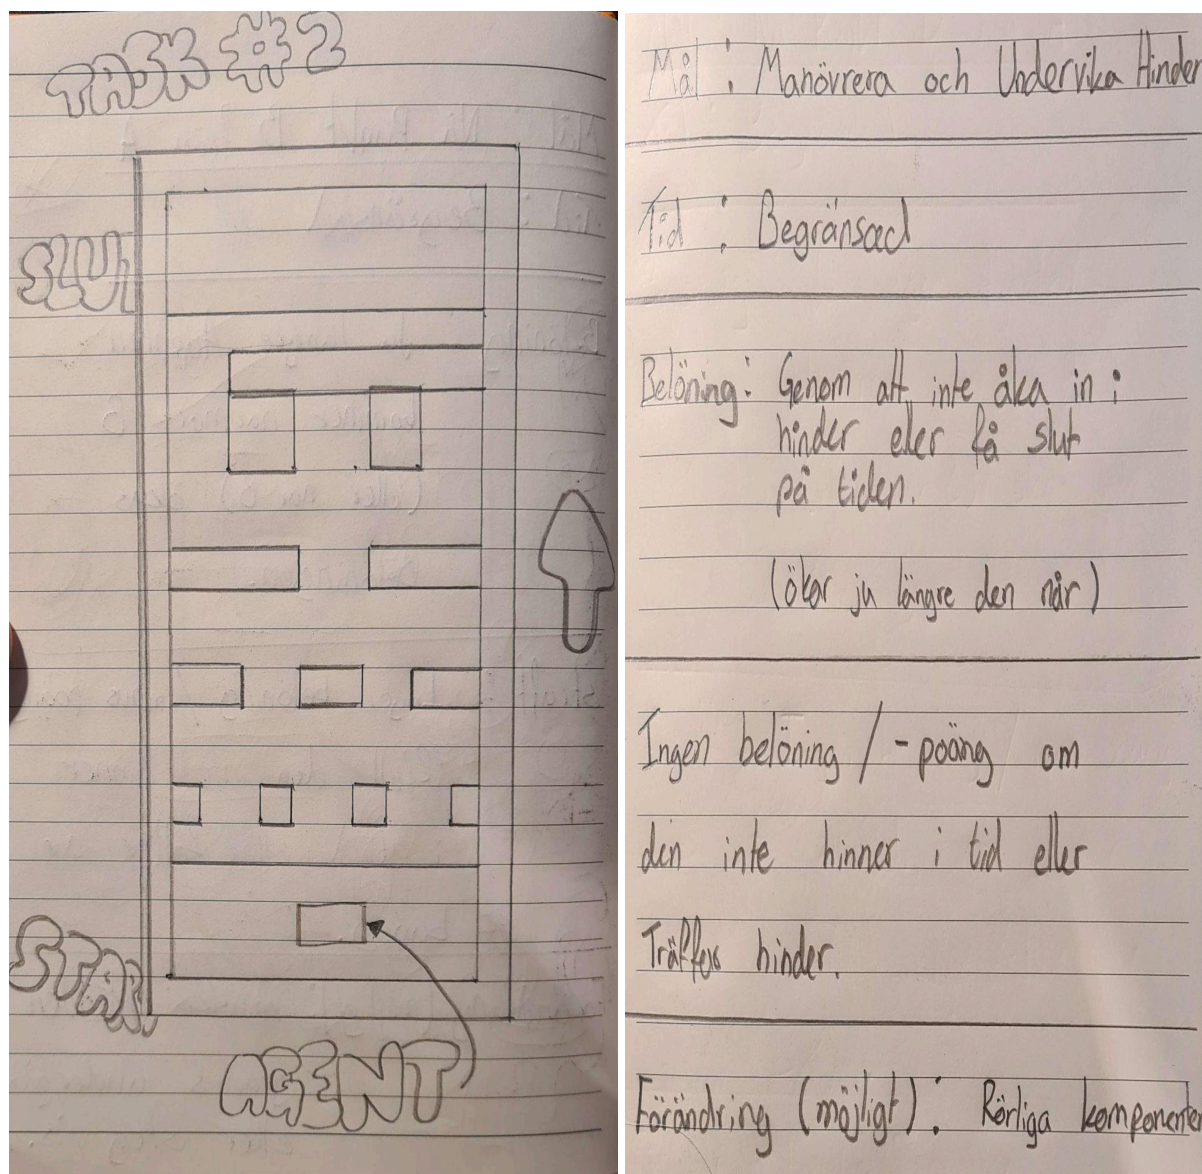 TASK #2
SLUT
START
AGENT
Mål : Manövrera och Undervika Hinder
Tid : Begränsad
Belöning: Genom att inte åka in i
hinder eller få slut
på tiden.
(ökar ju längre den når)
Ingen belöning / -poäng om
den inte hinner i tid eller
Träffar hinder.
Förändring (möjligt): Rörliga komponenter